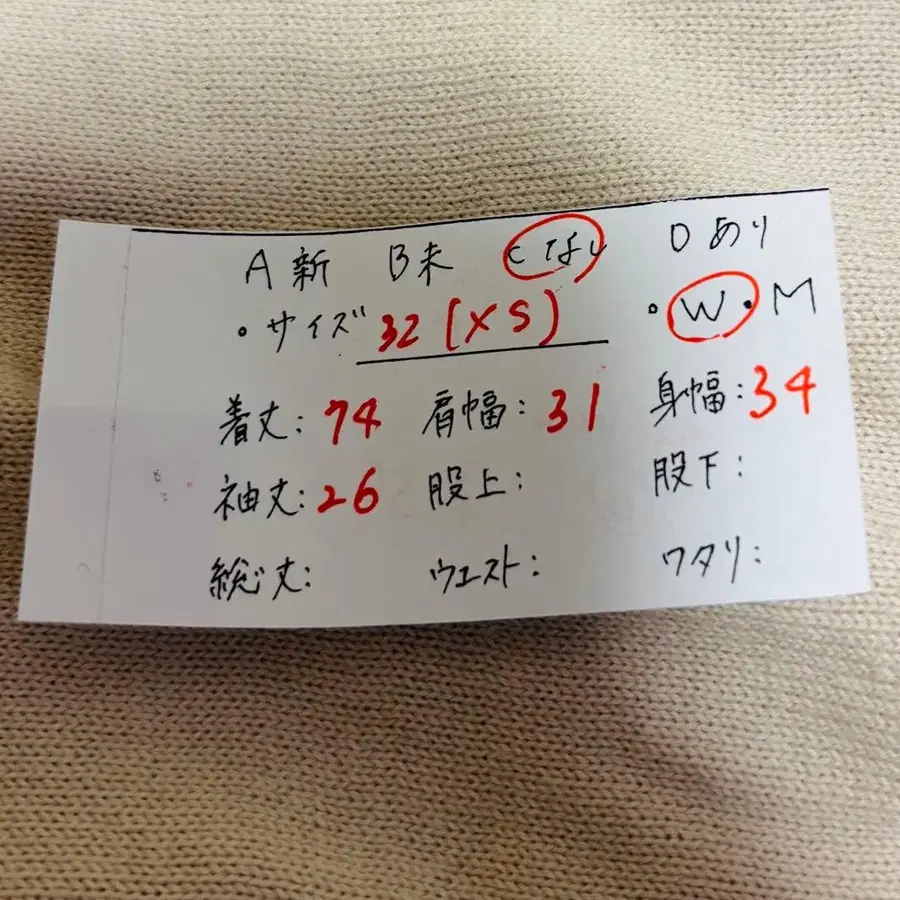 A 新 B未 C なし D あり
・サイズ 32 (XS) ・W・M
着丈:74 肩幅:31 身幅:34
袖丈:26 股上: 股下:
総丈: ウエスト: ワタリ: